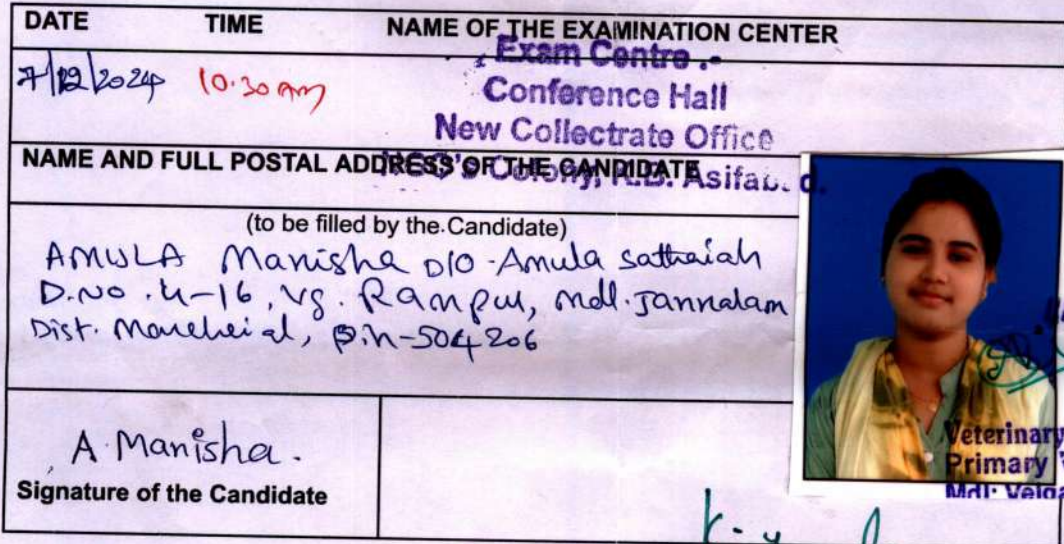 DATE TIME NAME OF THE EXAMINATION CENTER
7/12/2024 10.30 am
Exam Centre :-
Conference Hall
New Collectrate Office
Colony, K.B. Asifab. d.
NAME AND FULL POSTAL ADDRESS OF THE CANDIDATE
(to be filled by the Candidate)
AMULA Manisha D/O - Amula Sathaiah
D.NO. 4-16, Vg. Rampur, Mdl. Jannalam
Dist. Mancherial, Pin-504206
A. Manisha.
Signature of the Candidate
Veterinary
Primary
Mdl: Vejga